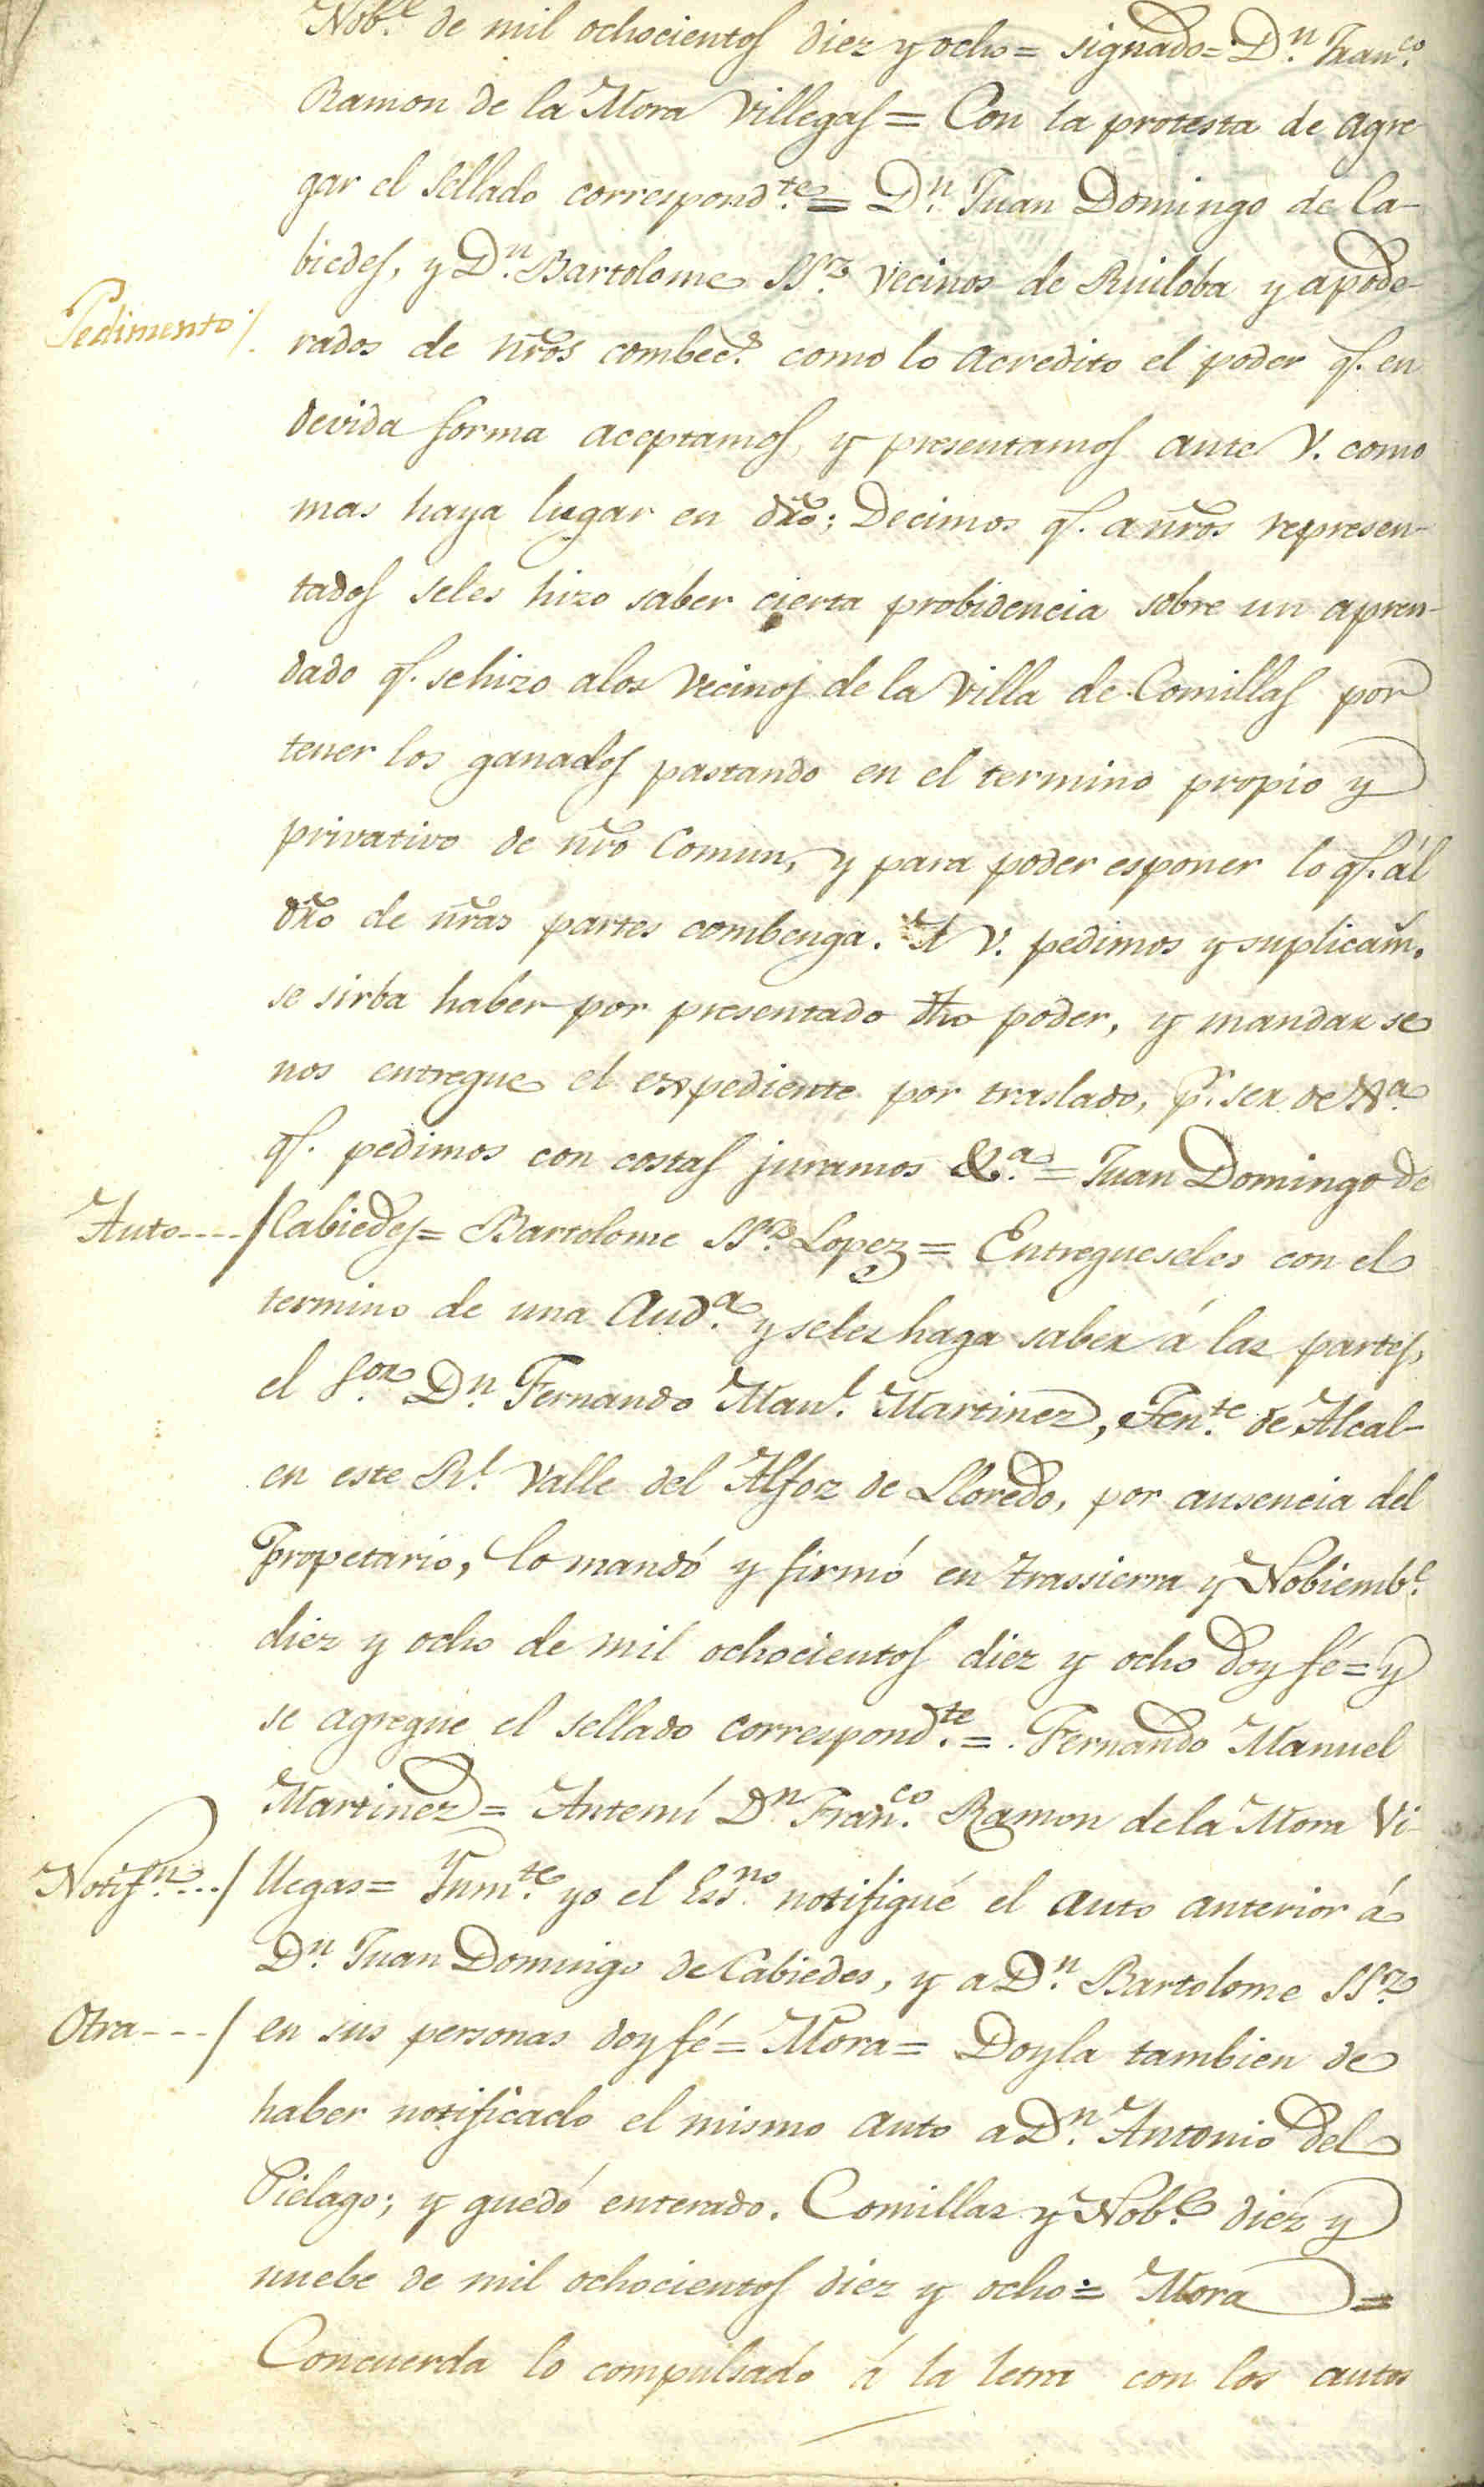 Nob.e de mil ochocientos diez y ocho = signado = D.n Fran.co
Ramon de la Mora Villegas = Con la protesta de agre
gar el sellado correspond.te = D.n Juan Domingo de Ca-
biedes, y D.n Bartolome SS.z vecinos de Ruiloba y apode-
Pedimento /. rados de nr̃os combec.s como lo acredito el poder q.e en
devida forma aceptamos, y presentamos ante V. como
mas haya lugar en dr̃o; Decimos q.e a nr̃os represen-
tados seles hizo saber cierta probidencia sobre un apren-
dado q.e sehizo alos vecinos de la Villa de Comillas por
tener los ganados pastando en el termino propio y
privativo de nr̃o Comun, y para poder esponer lo q.e ál
dr̃o de nr̃as partes combenga. A V. pedimos y suplicam̃.
se sirba haber por presentado dho poder, y mandar se
nos entregue el expediente por traslado, p.r ser de Xa.
q.e pedimos con costas juramos &.a = Juan Domingo de
Auto---- / Cabiedes = Bartolome SS.z Lopez = Entregueseles con el
termino de una Aud.a y seles haga saber á las partes,
el S.or D.n Fernando Man.l Martinez, Ten.te de Alcal-
en este R.l Valle del Alfoz de Lloredo, por ausencia del
Propetario, lo mandó y firmó en trassierra y Nobiemb.e
diez y ocho de mil ochocientos diez y ocho doy fé = y
se agregue el sellado correspond.te = Fernando Manuel
Martinez = Antemí D.n Fran.co Ramon dela Mora Vi-
Notif.n --- / llegas = Ynm.te yo el Ess.no notifigué el auto anterior á
D.n Juan Domingo de Cabiedes, y a D.n Bartolome SS.z
Otra --- / en sus personas doy fé = Mora = Doyla tambien de
haber notificado el mismo auto a D.n Antonio del
Piélago; y guedó enterado. Comillas y Nob.e diez y
nuebe de mil ochocientos diez y ocho = Mora =
Concuerda lo compulsado á la letra con los autos